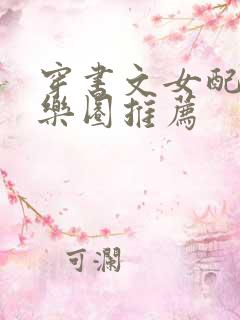 穿書文女配
樂園推薦
可瀾